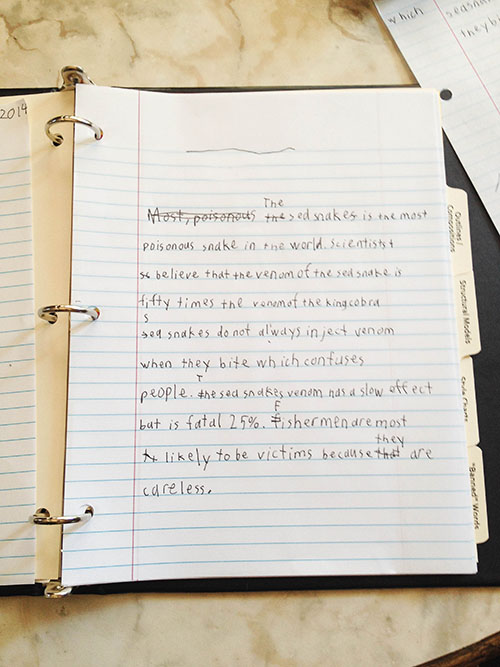 2014
which seasna
they
The
Most, poisonous the sed snakes is the most
poisonous snake in the world. scientists t
se believe that the venom of the sed snake is
fifty times the venom of the king cobra
s
sea snakes do not always inject venom
when they bite which confuses
T
people. the sea snakes venom has a slow effect
but is fatal 25%. Fishermen are most
F
likely to be victims because that are
they
careless.
Outlines /
Compositions
Structural Models
Style Charts
"Banned" Words